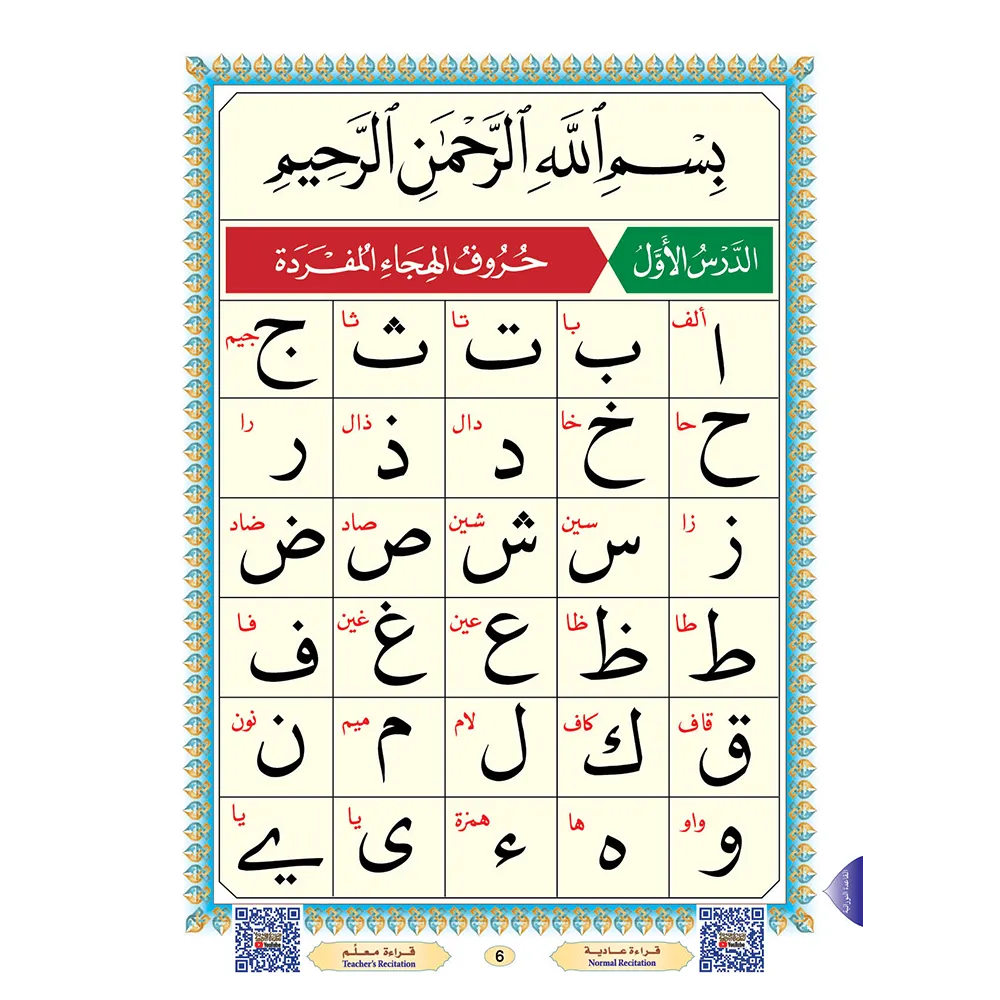 بِسْمِ ٱللَّهِ ٱلرَّحْمَٰنِ ٱلرَّحِيمِ
الدَّرْسُ الأَوَّلُ حُرُوفُ الهِجَاءِ المُفْرَدَة
ألف ا با ب تا ت ثا ث جيم ج
حا ح خا خ دال د ذال ذ را ر
زا ز سين س شين ش صاد ص ضاد ض
طا ط ظا ظ عين ع غين غ فا ف
قاف ق كاف ك لام ل ميم م نون ن
واو و ها ه همزة ء يا ى يا ے
القاعدة النورانية
قراءة عادية 6 قراءة معلّم
Normal Recitation Teacher's Recitation
YouTube YouTube